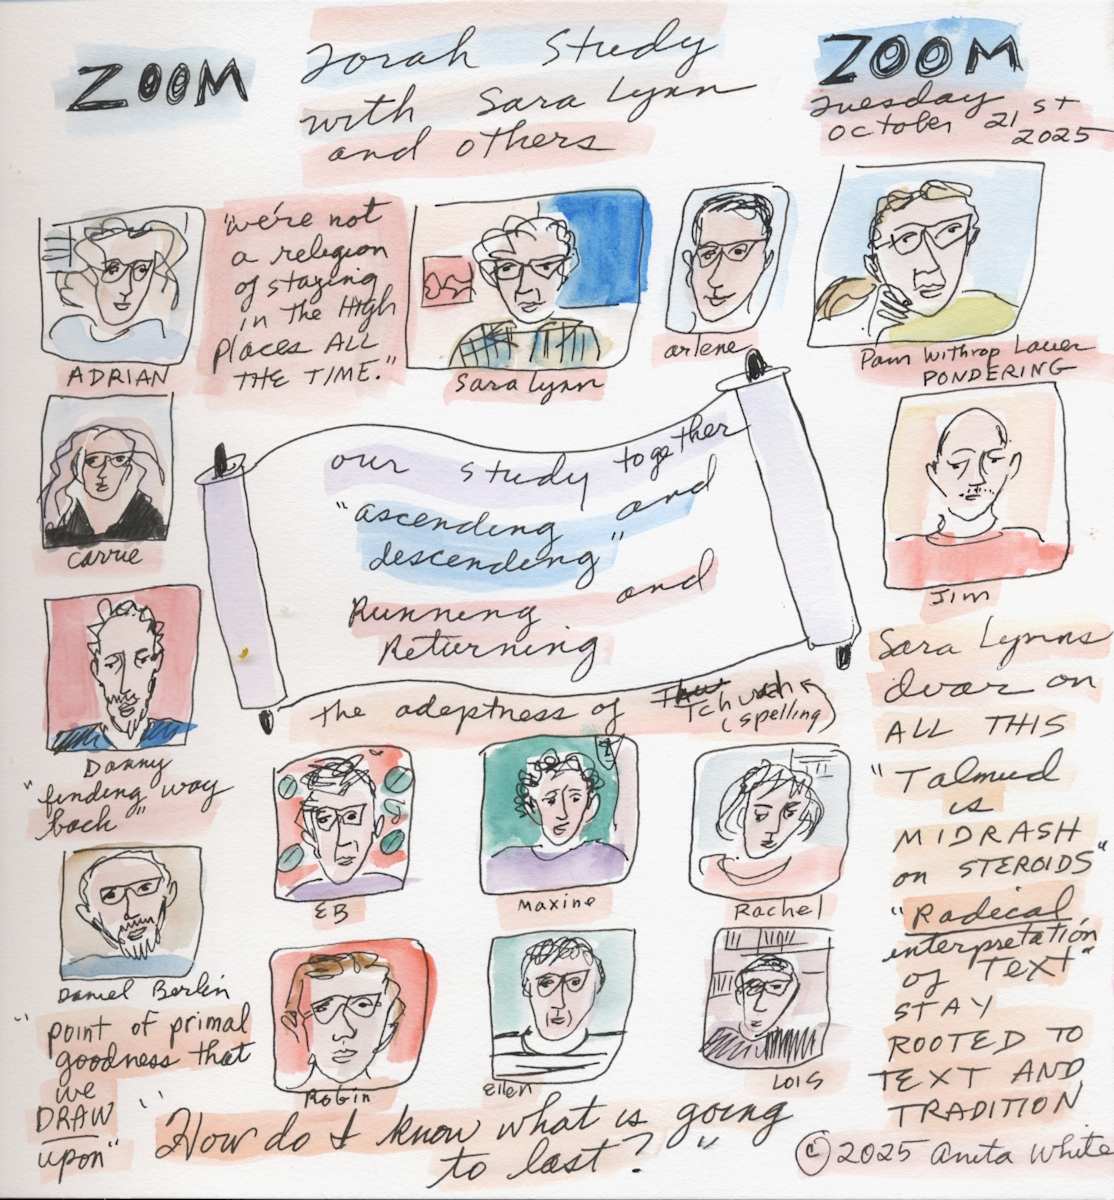 ZOOM
Torah Study
with Sara Lynn
and others
ZOOM
Tuesday
October 21st
2025
ADRIAN
"we're not
a religion
of staying
in the High
places ALL
THE TIME."
Sara Lynn
arlene
Pam Winthrop Lauer
PONDERING
Carrie
our study together
"ascending and
descending"
Running and
Returning
Jim
Danny
"finding way
back"
the adeptness of Tchuvah
(spelling)
Sara Lynns
dvar on
ALL THIS
"Talmud
is
MIDRASH
on STEROIDS"
"Radical
interpretation
of TEXT"
STAY
ROOTED TO
TEXT AND
TRADITION
EB
Maxine
Rachel
Daniel Berlin
"point of primal
goodness that
we
DRAW
upon"
Robin
Ellen
LOIS
"How do I know what is going
to last?"
© 2025 Anita White